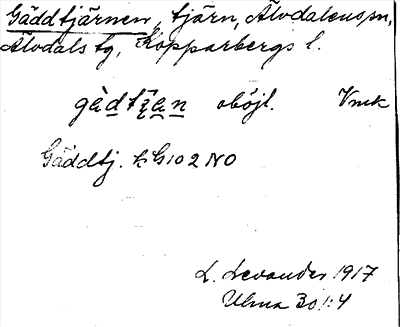 Gäddtjärnen, tjärn, Älvdalens sn,
Älvdals tg, Kopparbergs l.
oböjl. Vmk
Gäddtj. G102 NO
L. Levander 1917
Ulma 301:4